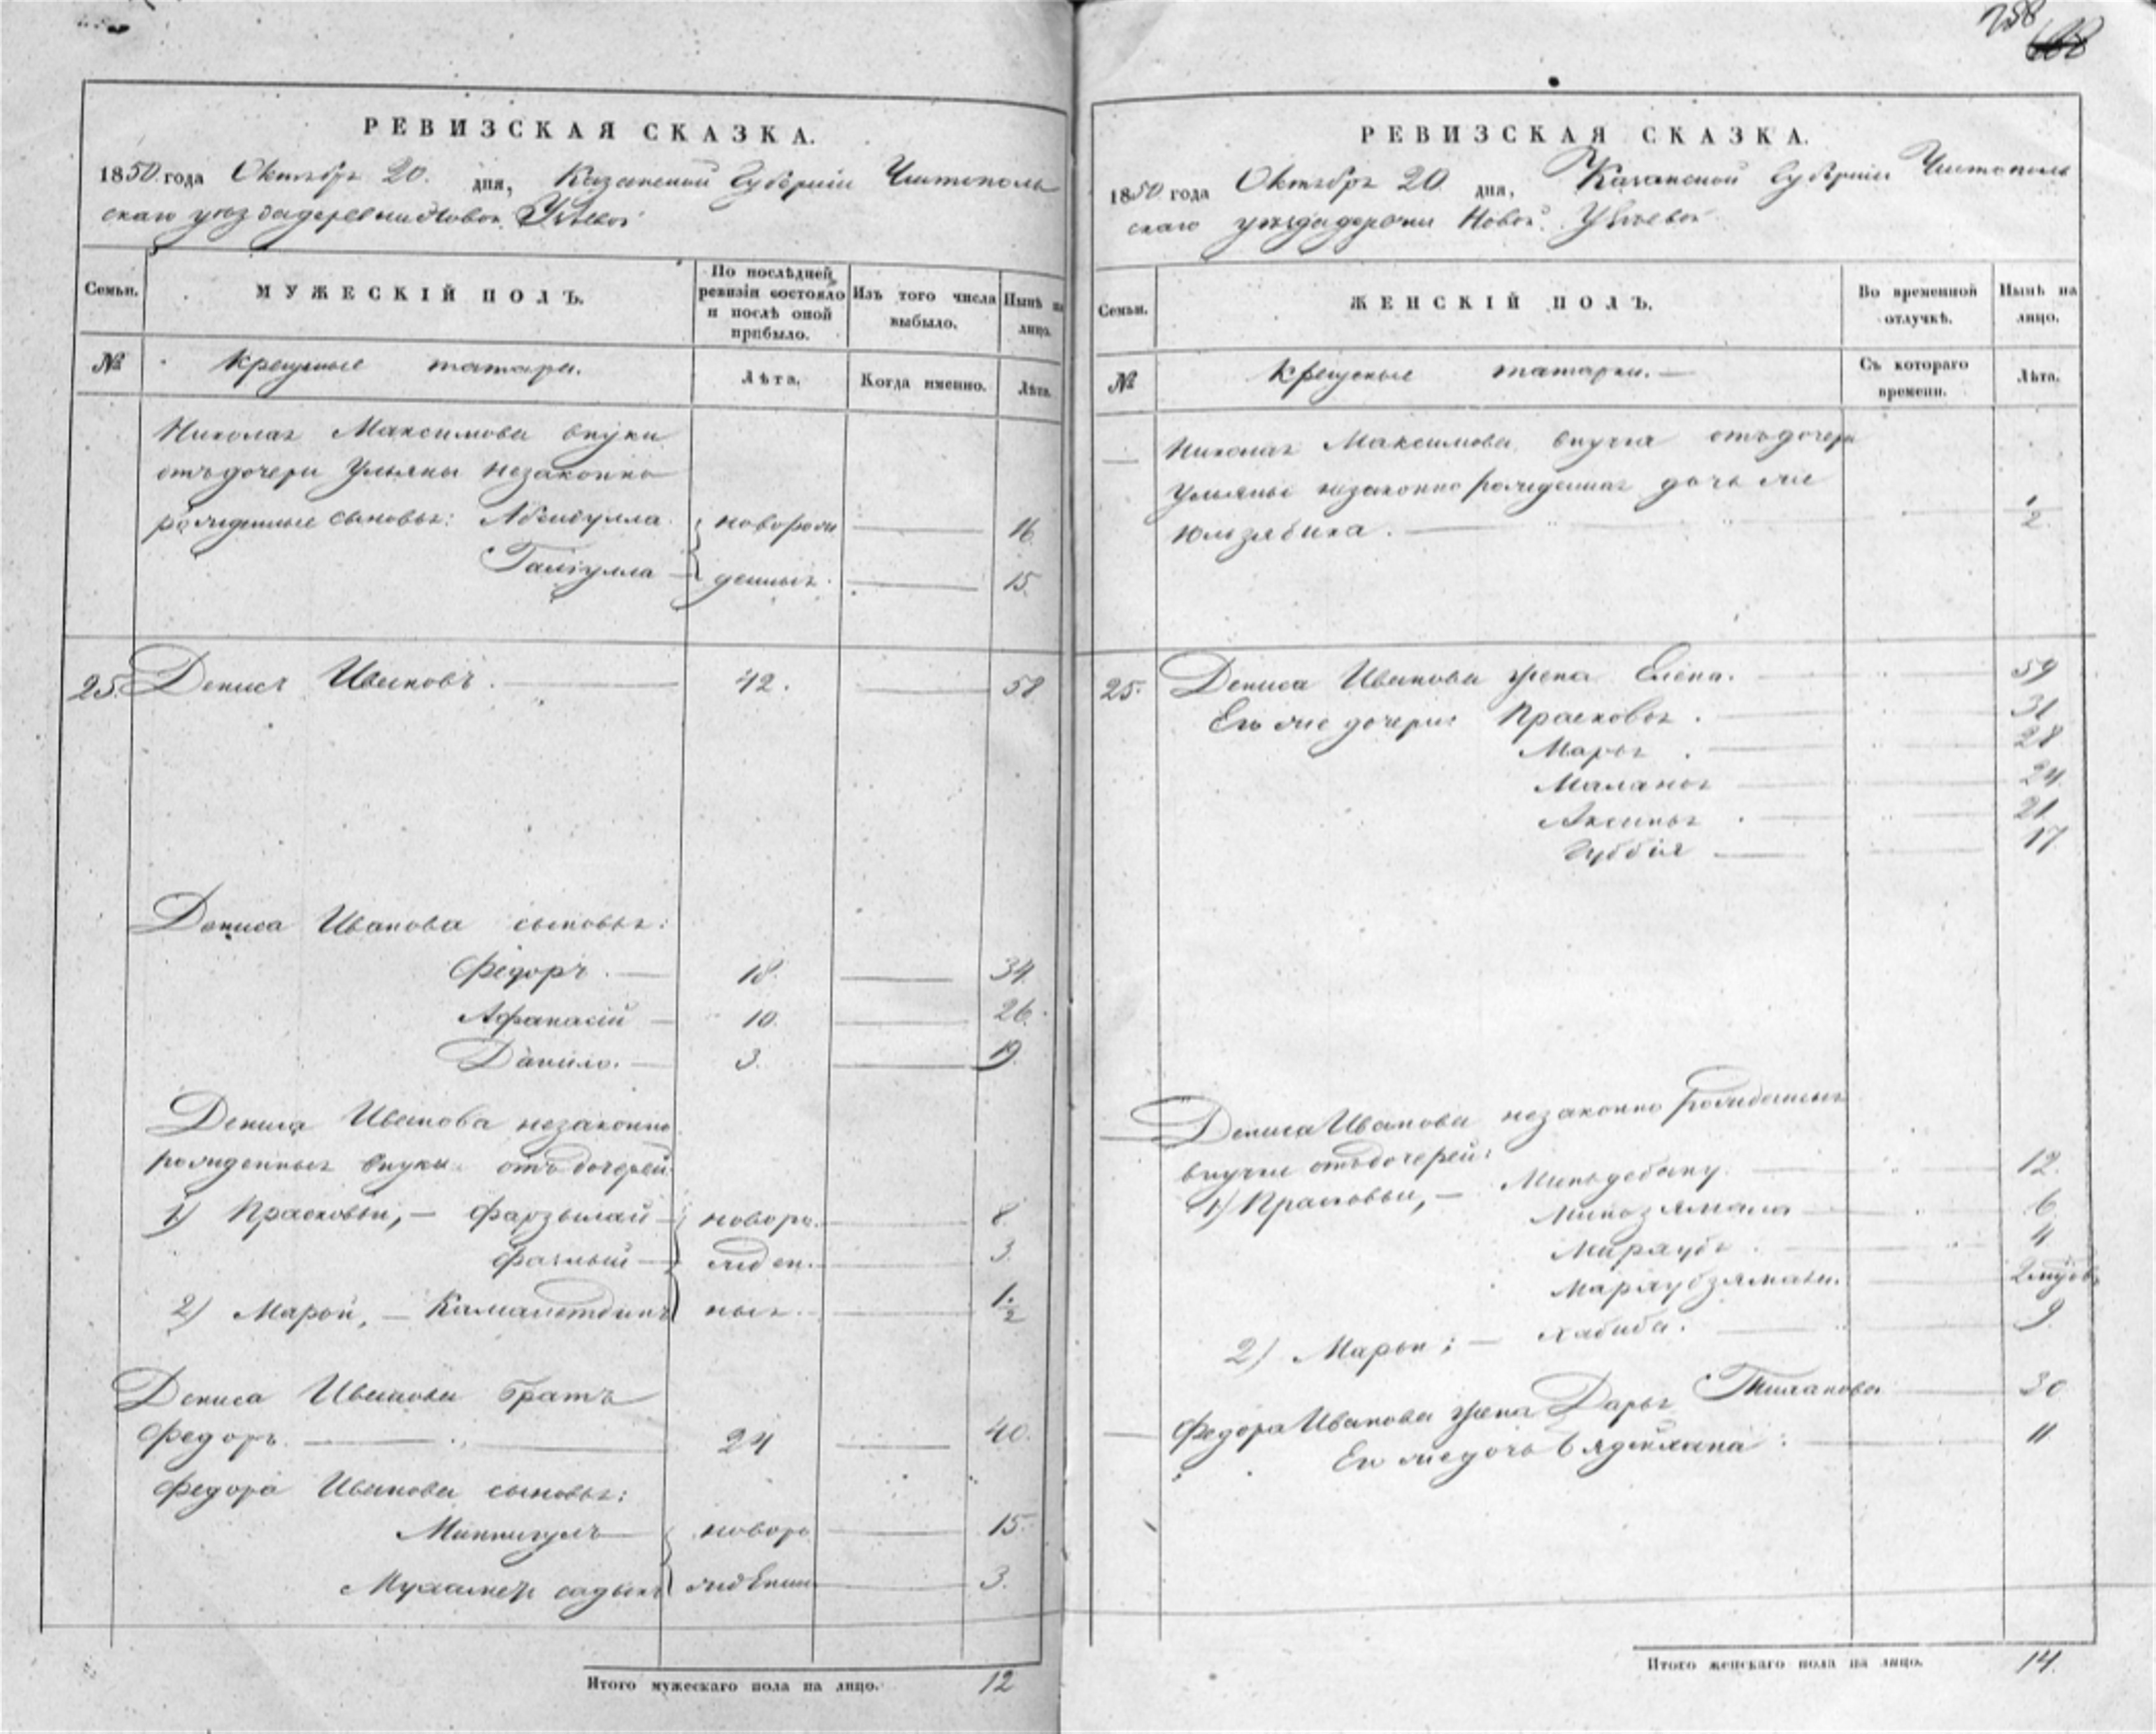 258
РЕВИЗСКАЯ СКАЗКА.
1850 года Октября 20. дня, Казанской Губерніи Чистополь
скаго уѣзда деревни Новой
Семьи.
МУЖЕСКІЙ ПОЛЪ.
По послѣдней ревизіи состояло и послѣ оной прибыло.
Изъ того числа выбыло.
Нынѣ на лицо.
№
крещеные татары.
Лѣта.
Когда именно.
Лѣта.
Николая Максимова внуки
отъ дочери Ульяны незаконно
рожденные сыновья: Абейдулла новорож 16.
Галіулла денныя. 15.
25. Денисъ Ивановъ. 42. 58
Дениса Иванова сыновья:
Федоръ. 18. 34.
Афанасій 10. 26.
Данило. 3. 19.
Дениса Иванова незаконно
рожденныя внуки отъ дочерей
1) Прасковьи, – новоро. 8.
жден. 3.
2) Марьи, – Камалетдинъ ныя. 1/2
Дениса Иванова братъ
Федоръ. 24 40.
Федора Иванова сыновья:
Миннигулъ новоро 15.
Мухаметъ садыкъ 3.
Итого мужескаго пола на лицо. 12
РЕВИЗСКАЯ СКАЗКА.
1850 года Октября 20. дня, Казанской Губерніи Чистополь
скаго уѣзда деревни Новой
Семьи.
ЖЕНСКІЙ ПОЛЪ.
Во временной отлучкѣ.
Нынѣ на лицо.
№
крещеные татарки.
Съ котораго времени.
Лѣта.
Николая Максимова внучка отъ дочери
Ульяны незаконно рожденная дочь же
Юльзябика. 1/2
25. Дениса Иванова жена Елена. 59
Его же дочери: Прасковья. 31
Марья. 28
Маланья 24
Аксинья 21
Хуббія 17
Дениса Иванова незаконно рожденныя
внучки отъ дочерей:
1) Прасковьи, – Миньдебану. 12.
Миньзямала 6.
4
2
2) Марьи; – Хабиба. 9
Федора Иванова жена Дарья 30
Его же дочь 11
Итого женскаго пола на лицо. 14.